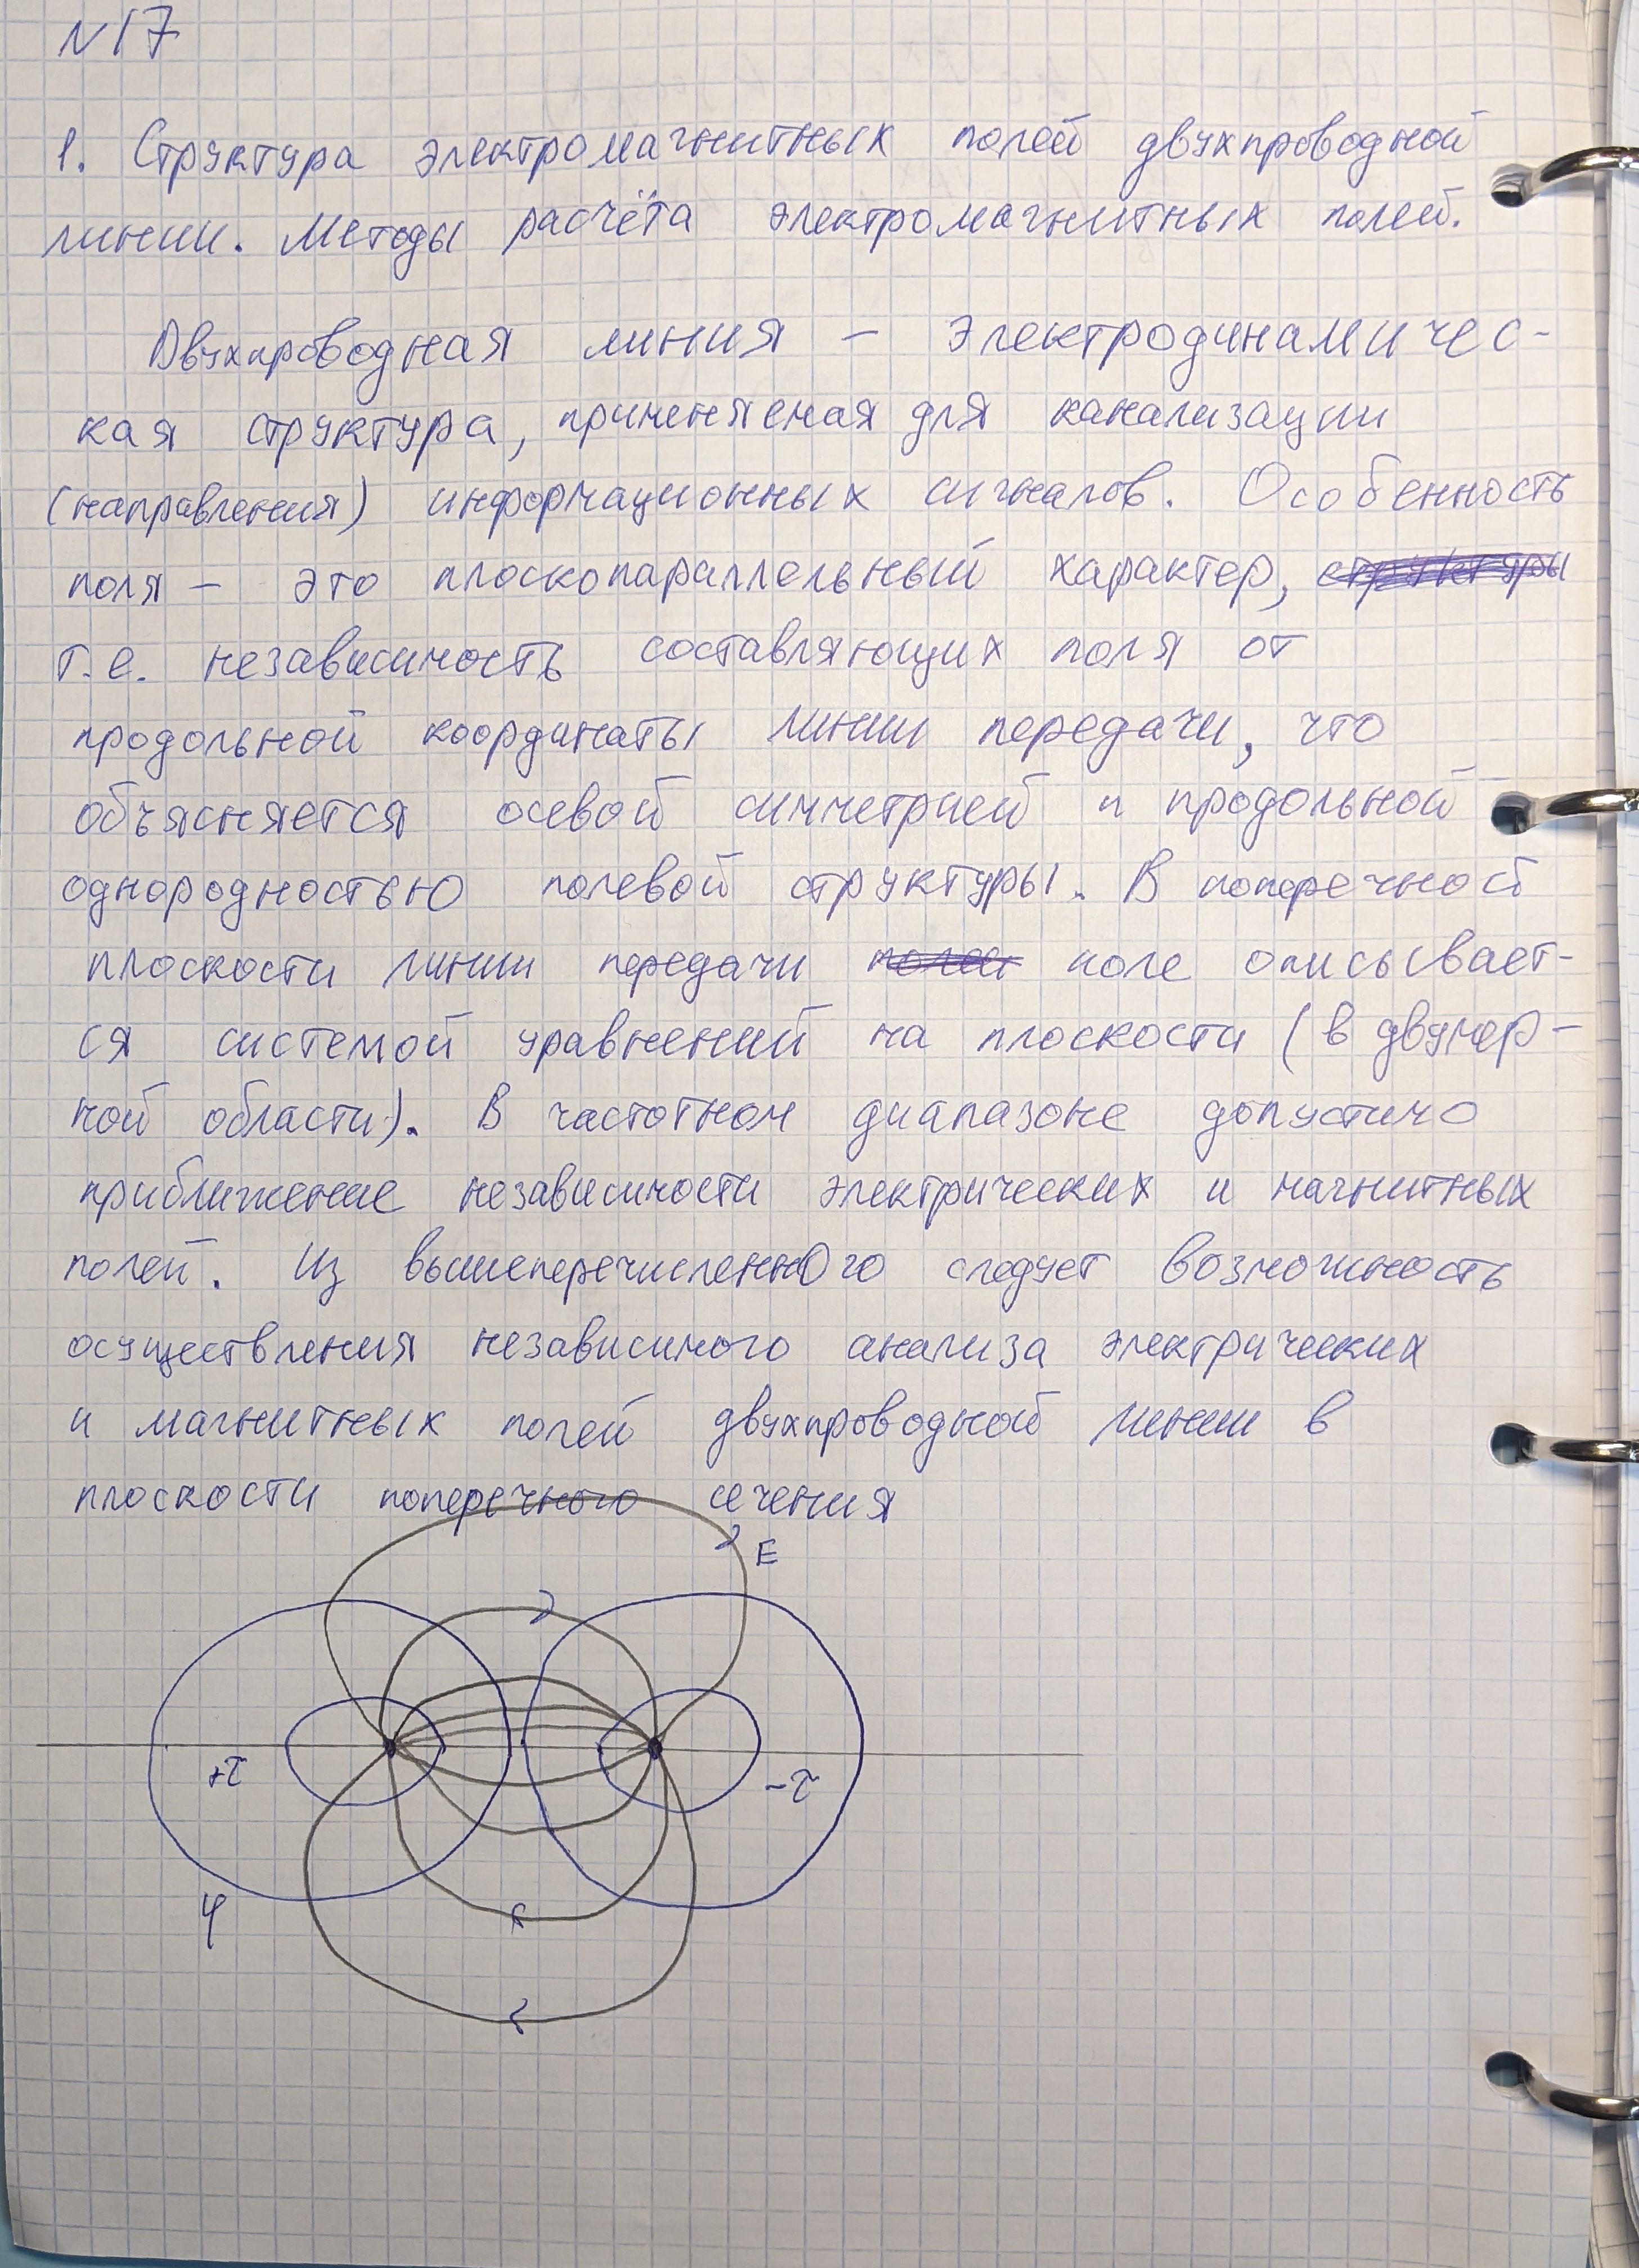 N17
1. Структура электромагнитных полей двухпроводной
линии. Методы расчёта электромагнитных полей.
Двухпроводная линия – электродинамичес-
кая структура, применяемая для канализации
(направления) информационных сигналов. Особенность
поля – это плоскопараллельный характер, структуры
т.е. независимость составляющих поля от
продольной координаты линии передачи, что
объясняется осевой симметрией и продольной
однородностью полевой структуры. В поперечной
плоскости линии передачи поле описывает-
ся системой уравнений на плоскости (в двумер-
ной области). В частотном диапазоне допустимо
приближение независимости электрических и магнитных
полей. Из вышеперечисленного следует возможность
осуществления независимого анализа электрических
и магнитных полей двухпроводной линии в
плоскости поперечного сечения
E
+τ
-τ
φ